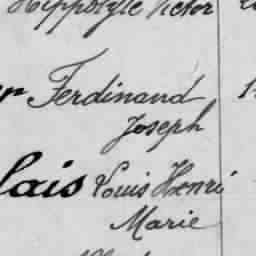 Hippolyte Victor
Ferdinand
Joseph
lais Louis Henri
Marie